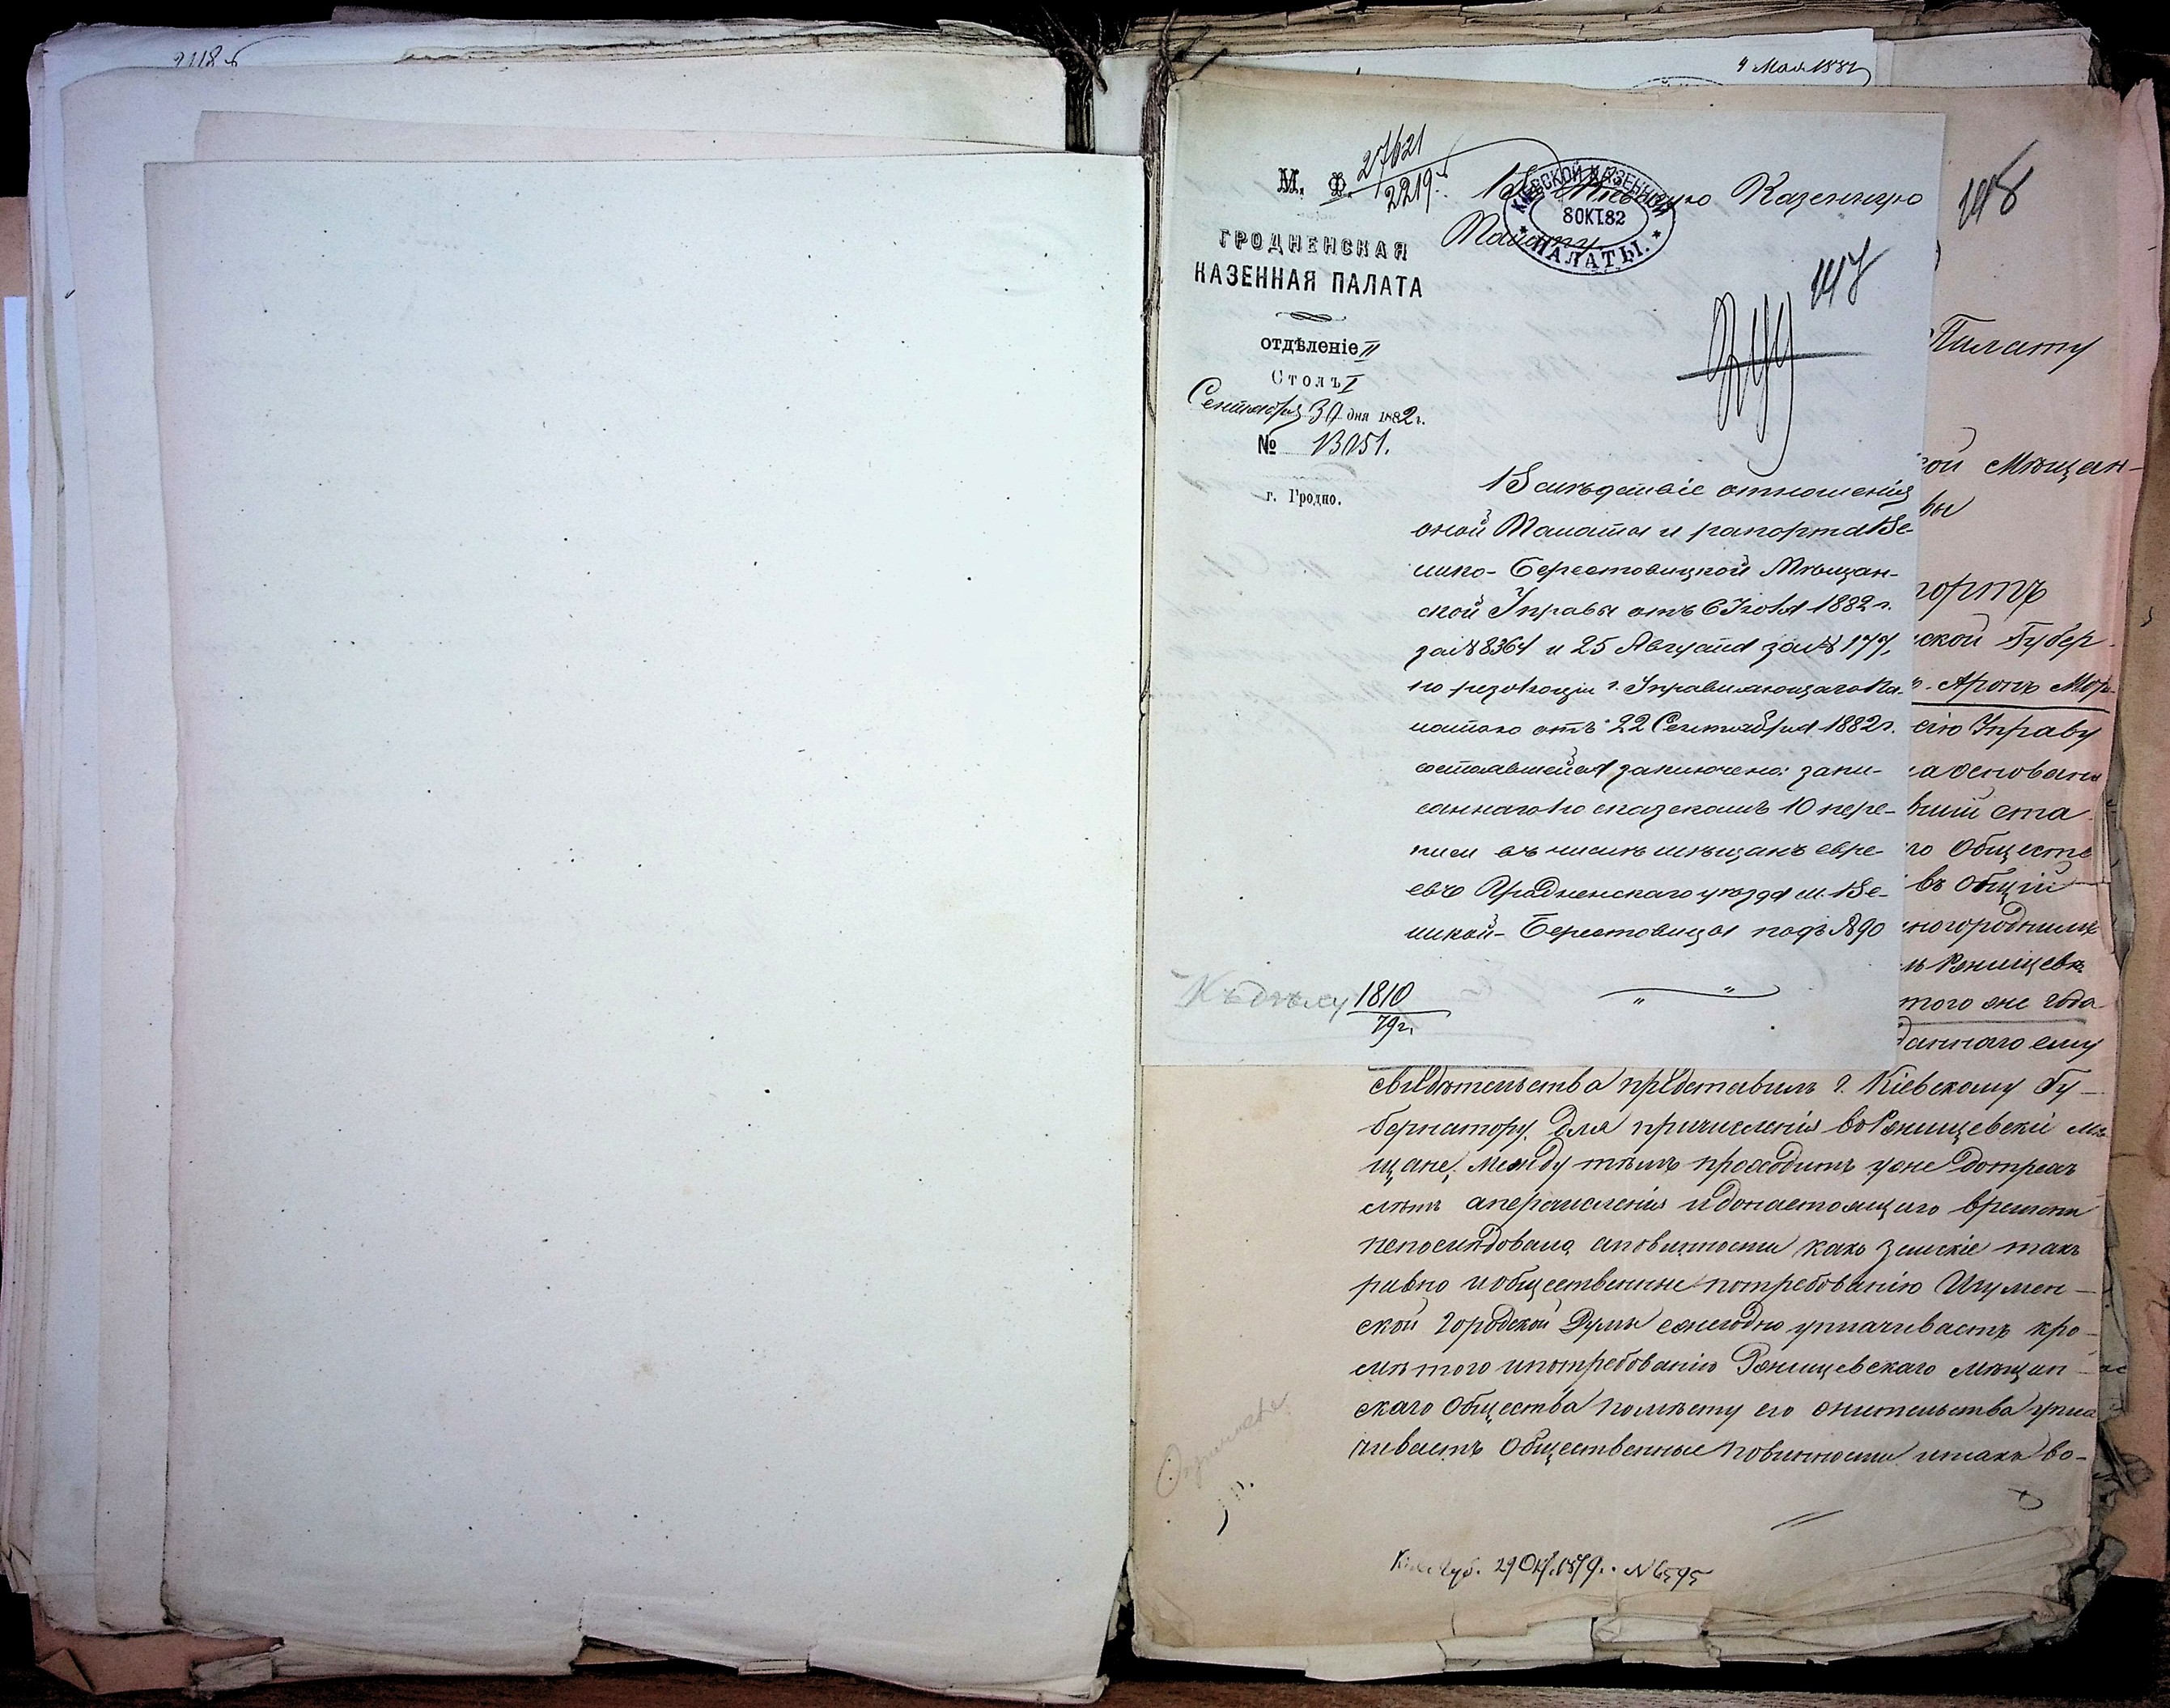 4 Мая 1881
М. Ф.
27621
2219.
Въ Кіевскую Казенную
Палату.
КІЕВСКОЙ КАЗЕННОЙ
8 ОКТ. 82
ПАЛАТЫ.
148
147
ГРОДНЕНСКАЯ
КАЗЕННАЯ ПАЛАТА
отдѣленіе II
Столъ I
Сентября 30 дня 1882 г.
№ 13051.
г. Гродно.
Вслѣдствіе отношенія
оной Палаты и рапорта Ве-
лико-Берестовицкой Мѣщан-
ской Управы отъ 6 Іюля 1882 г.
за № 8364 и 25 Августа за № 177,
по резолюціи г. Управляющаго Па-
латою отъ 22 Сентября 1882 г.
состоявшейся заключено: запи-
саннаго по сказкамъ 10 пере-
писи въ числѣ мѣщанъ евре-
евъ Гродненскаго уѣзда м. Ве-
ликой-Берестовицы подъ № 90
Къ дѣлу 1810
79 г.
Палату
ой Мѣщан-
вы
портъ
ской Губер-
Аронъ Мор-
сію Управу
на основан
го Обществ
въ Общій
иногороднимъ
ъ Ржищевѣ
того же года
даннаго ему
свидѣтельства представилъ г. Кіевскому Гу-
бернатору, для причисленія въ Ржищевскіе мѣ
щане, между тѣмъ проходитъ уже до трехъ
лѣтъ а перечисленія и до настоящаго времени
непослѣдовало, а повинности какъ земскіе такъ
равно и общественные по требованію Игумен-
ской Городской Думы ежегодно уплачиваетъ кро-
мѣ того и по требованію Ржищевскаго мѣщан-
скаго Общества по мѣсту его жительства упла
чиваетъ Общественные повинности и такъ во-
Губ. 29 Окт. 1879 г. № 6595